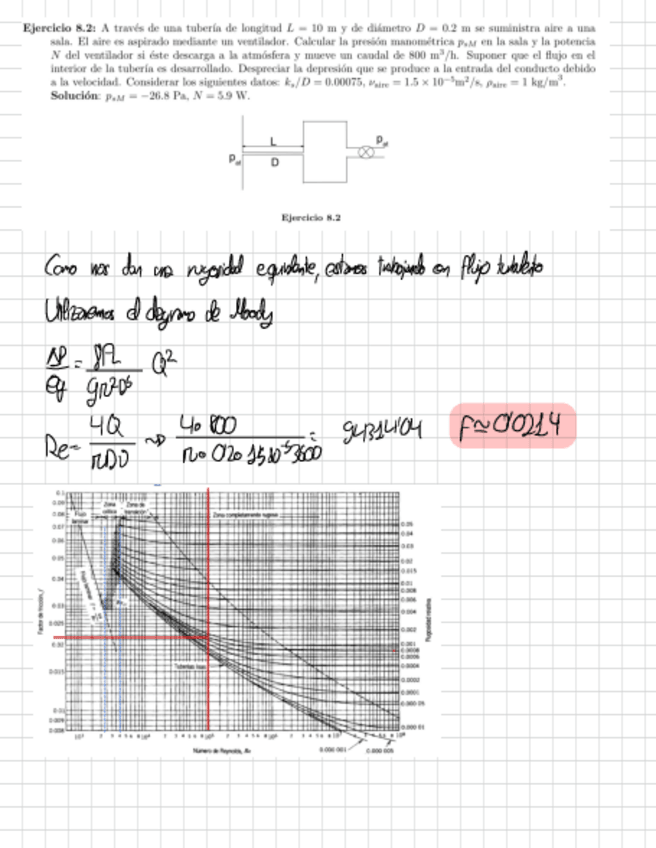 Ejercicio 8.2: A través de una tubería de longitud L = 10 m y de diámetro D = 0.2 m se suministra aire a una
sala. El aire es aspirado mediante un ventilador. Calcular la presión manométrica psM en la sala y la potencia
N del ventilador si éste descarga a la atmósfera y mueve un caudal de 800 m³/h. Suponer que el flujo en el
interior de la tubería es desarrollado. Despreciar la depresión que se produce a la entrada del conducto debido
a la velocidad. Considerar los siguientes datos: ks/D = 0.00075, νaire = 1.5 × 10⁻⁵m²/s, ρaire = 1 kg/m³.
Solución: psM = −26.8 Pa, N = 5.9 W.
L
Pat
D
Pat
Ejercicio 8.2
Como nos dan una rugosidad equivalente, estamos trabajando en flujo turbulento
Utilizaremos el diagrama de Moody
ΔP/ρg = 8fL/gπ²D⁵ Q²
Re = 4Q/πDν → 4·800/π·0'20·1'5·10⁻⁵·3600 = 94314'04 f≃0'0214
Flujo laminar
Zona crítica
Zona de transición
Zona completamente rugosa
Factor de fricción, f
Rugosidad relativa
Tuberías lisas
Número de Reynolds, Re
0.1
0.09
0.08
0.07
0.06
0.05
0.04
0.03
0.025
0.02
0.015
0.01
0.009
0.008
0.05
0.04
0.03
0.02
0.015
0.01
0.008
0.006
0.004
0.002
0.001
0.0008
0.0006
0.0004
0.0002
0.0001
0.000 05
0.000 01
0.000 001
0.000 005